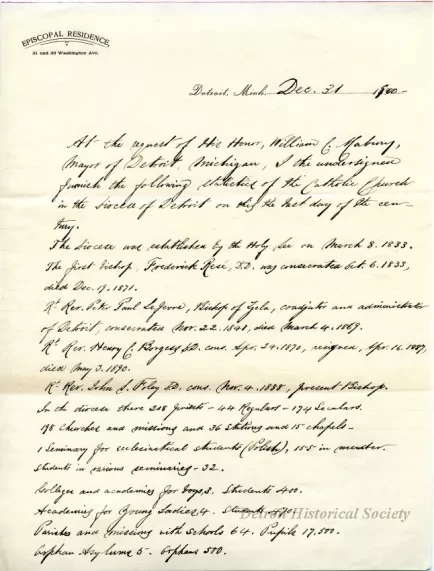 EPISCOPAL RESIDENCE,
31 and 33 Washington Ave.
Detroit, Mich. Dec. 31 1900-
At the request of His Honor, William C. Mabury,
Mayor of Detroit, Michigan, I the undersigned
furnish the following statistics of the Catholic Church
in the diocese of Detroit on this the last day of the cen-
tury.
The diocese was established by the Holy See on March 8. 1833.
The first bishop, Frederick Résé, D.D. was consecrated Oct. 6. 1833,
died Dec. 1871.
Rt Rev. Peter Paul Lefevre, Bishop of Zela, coadjutor and administrator
of Detroit, consecrated Nov. 22. 1841, died March 4. 1869.
Rt Rev. Henry C. Borgess D.D. cons. Apr. 24. 1870, resigned, Apr. 16. 1887,
died May 3. 1890.
Rt Rev. John S. Foley D.D. cons. Nov. 4. 1888, present Bishop.
In the diocese there 218 priests - 44 Regulars - 174 Seculars.
198 Churches and missions and 36 stations and 15 chapels -
1 Seminary for ecclesiastical students (Polish), 155 in number.
Students in various seminaries - 32.
Colleges and academies for boys, 3. Students 400.
Academies for Young Ladies, 4. Students 470.
Parishes and missions with schools 64. Pupils 17,500.
Orphan Asylums 5. Orphans 500.
Detroit Historical Society